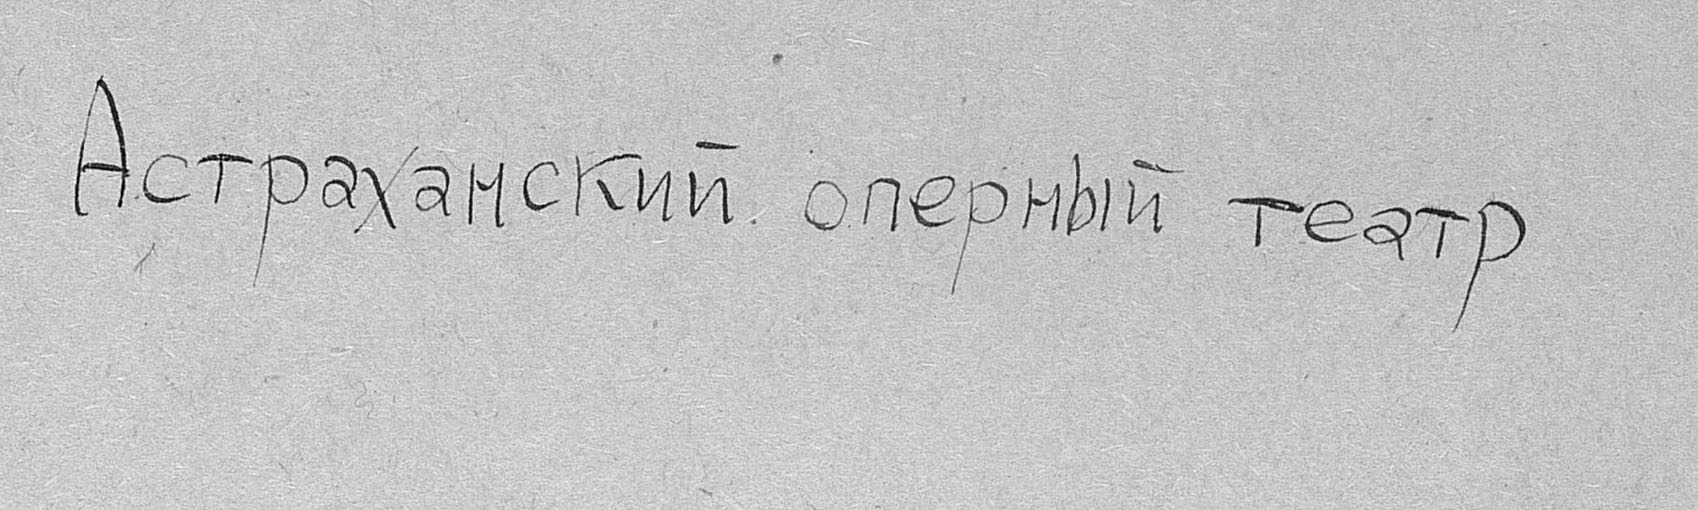 Астраханский оперный театр